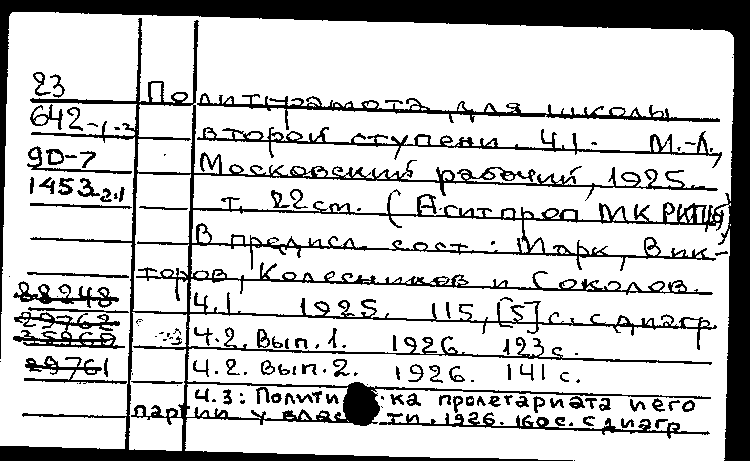 23 Политграмота для школы
642-1-3 второй ступени. Ч.1- М.-Л.,
9D-7 Московский рабочий, 1925.
1453-2.1 т. 22 cm. (Агитпроп МК РКП(б))
В предисл. сост.: Марк, Вик-
торов, Колесников и Соколов.
28248 Ч.1. 1925. 115, [5] с. с диагр.
Ч.2. Вып.1. 1926. 123 с.
29761 Ч.2. Вып.2. 1926. 141 с.
Ч.3: Полити ка пролетариата и его
партии у влас ти. 1926. 160 с. с диагр